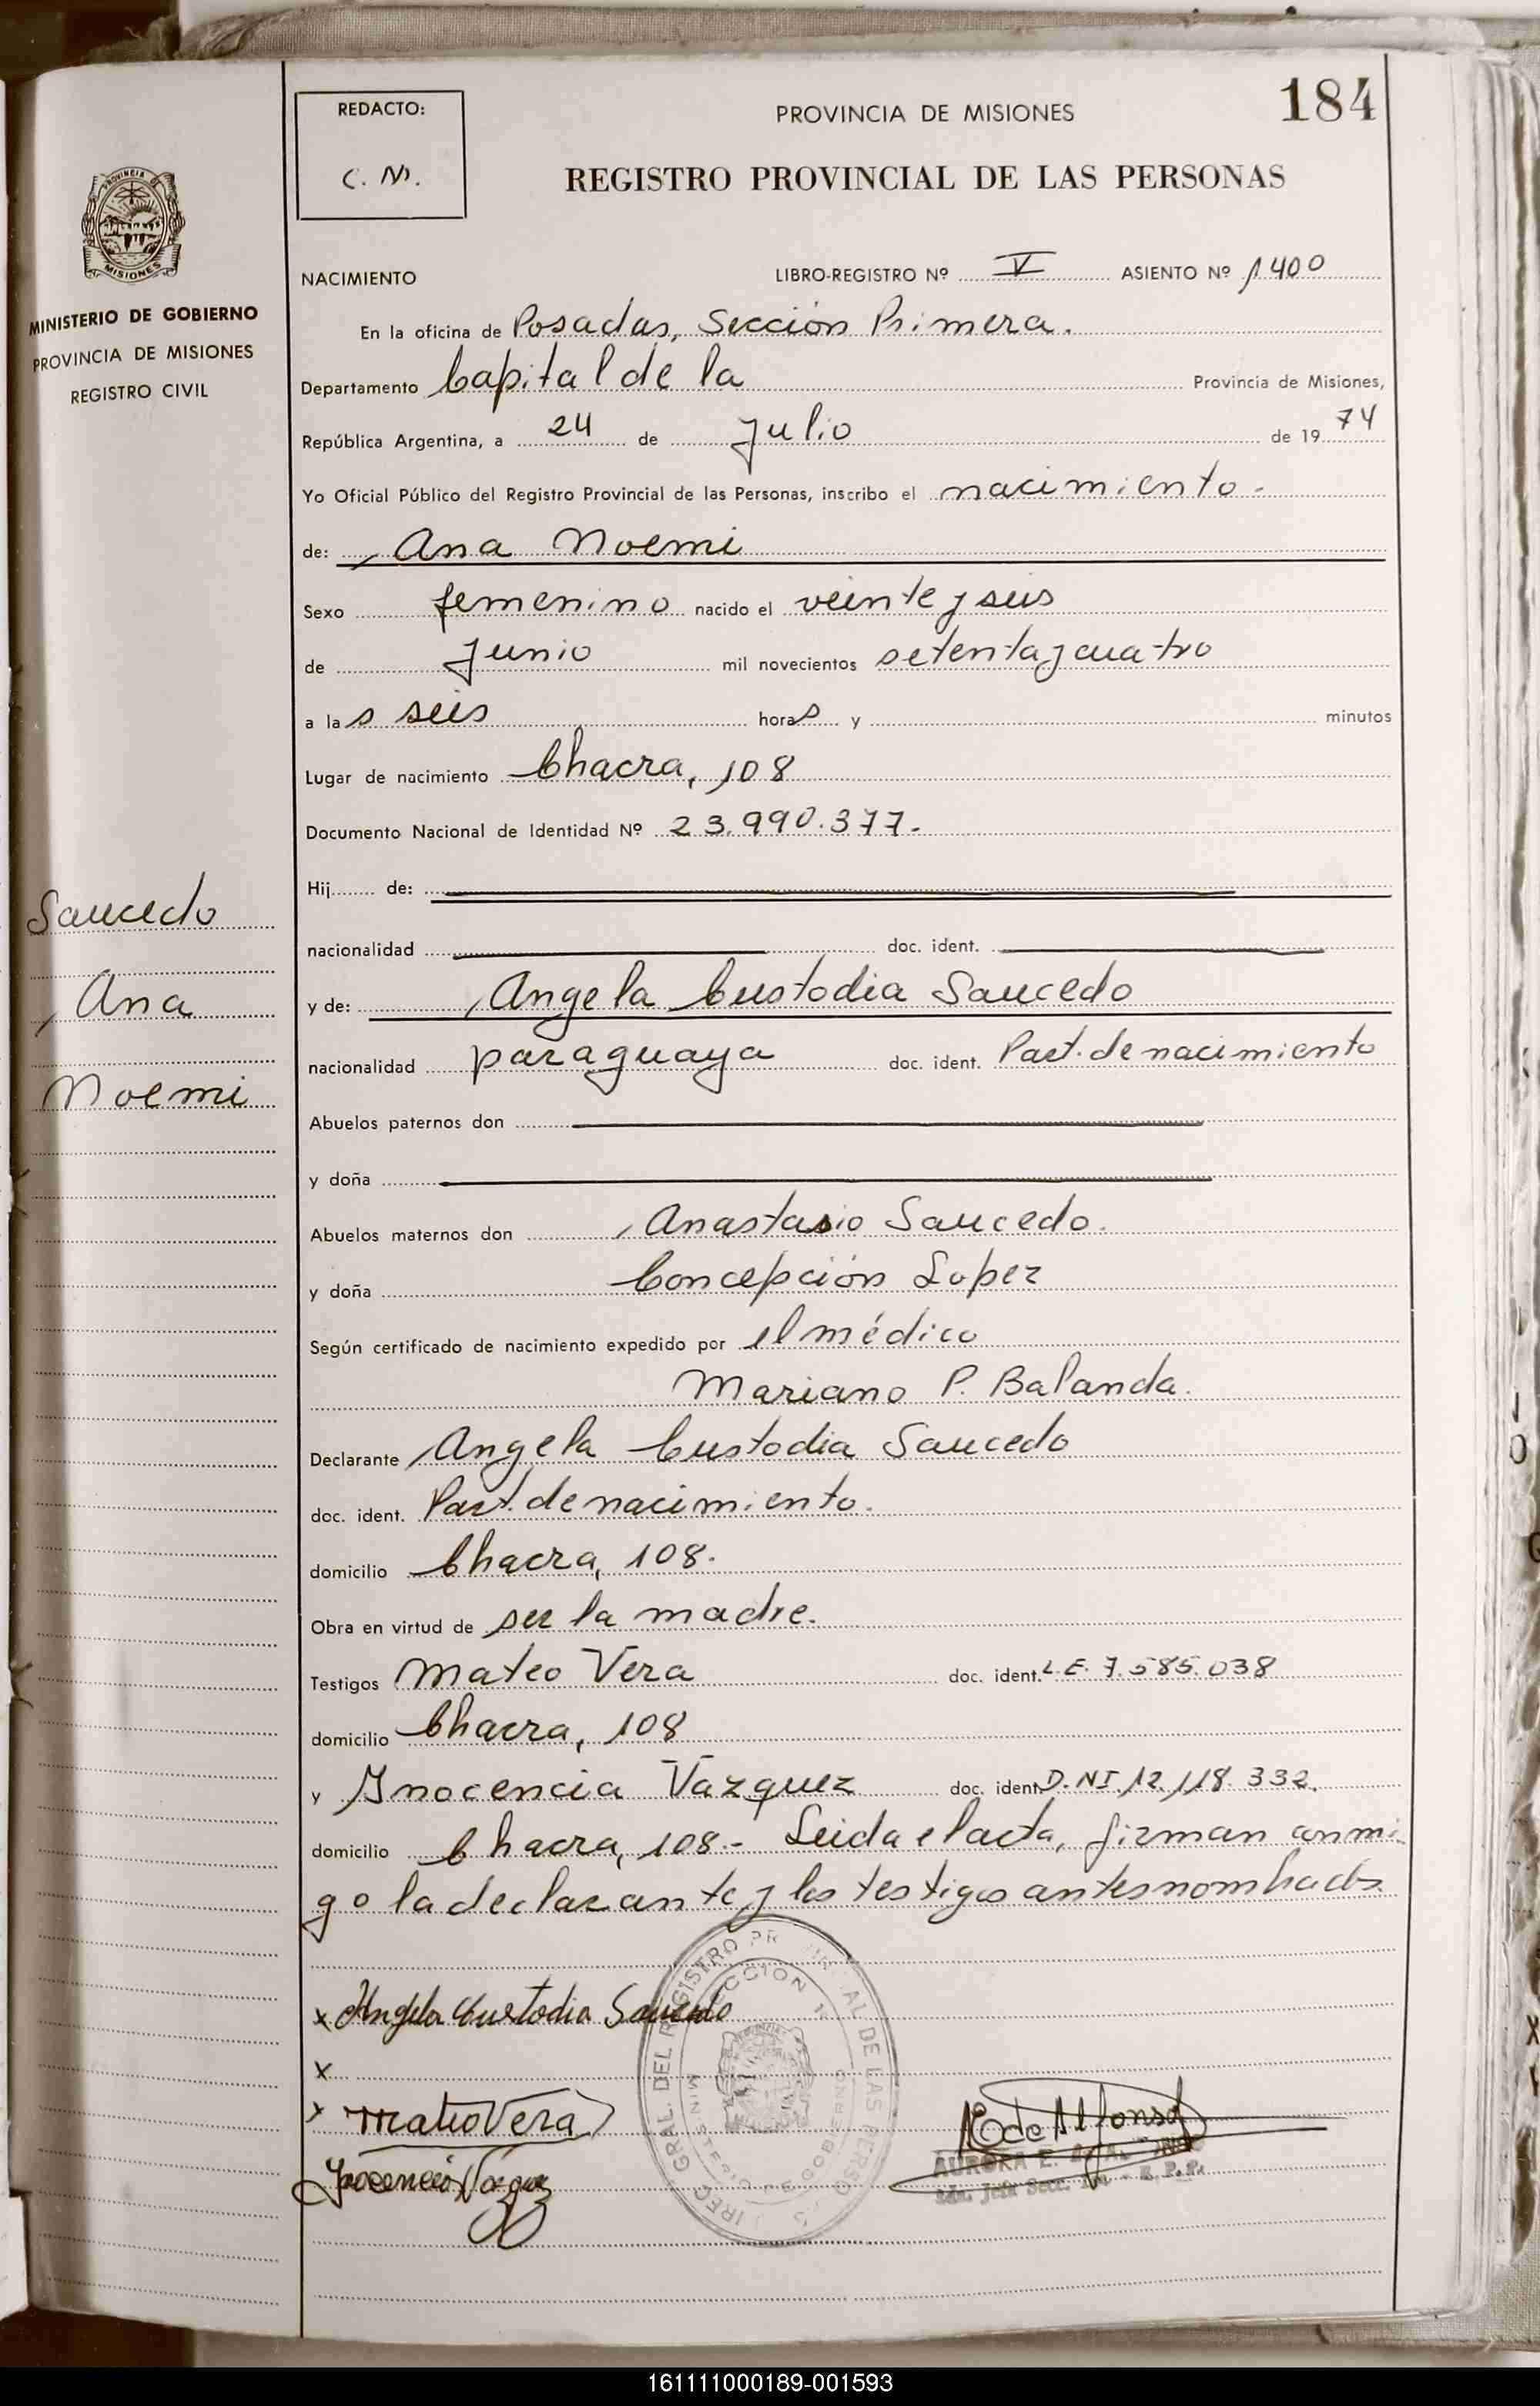 184
REDACTO:
C. M.
PROVINCIA DE MISIONES
REGISTRO PROVINCIAL DE LAS PERSONAS
PROVINCIA DE
MISIONES
MINISTERIO DE GOBIERNO
PROVINCIA DE MISIONES
REGISTRO CIVIL
NACIMIENTO LIBRO-REGISTRO Nº V ASIENTO Nº 1400
En la oficina de Posadas, Sección Primera.
Departamento Capital de la Provincia de Misiones,
República Argentina, a 24 de Julio de 1974
Yo Oficial Público del Registro Provincial de las Personas, inscribo el nacimiento.
de: Ana Noemi
Sexo femenino nacido el veinte y seis
de Junio mil novecientos setenta y cuatro
a las seis horas y minutos
Lugar de nacimiento Chacra, 108
Documento Nacional de Identidad Nº 23.990.377.
Hij de:
nacionalidad doc. ident.
y de: Angela Custodia Saucedo
nacionalidad paraguaya doc. ident. Part. de nacimiento
Abuelos paternos don
y doña
Abuelos maternos don Anastasio Saucedo.
y doña Concepción Lopez
Según certificado de nacimiento expedido por el médico
Mariano P. Balanda.
Declarante Angela Custodia Saucedo
doc. ident. Part. de nacimiento.
domicilio Chacra, 108.
Obra en virtud de ser la madre.
Testigos Mateo Vera doc. ident. L.E. 7.585.038
domicilio Chacra, 108
y Inocencia Vazquez doc. ident. D.NI 12.118.332.
domicilio Chacra, 108.- Leida el acta, firman conmi
go la declarante y los testigos antes nombrados
Saucedo
Ana
Noemi
x Angela Custodia Saucedo
x
x Mateo Vera
Inocencia Vazquez
E de Alfonso
AURORA E.
GRAL. DEL REGISTRO PROVINCIAL DE LAS PERSONAS
SECCION 1ª
MINISTERIO DE GOBIERNO
161111000189-001593